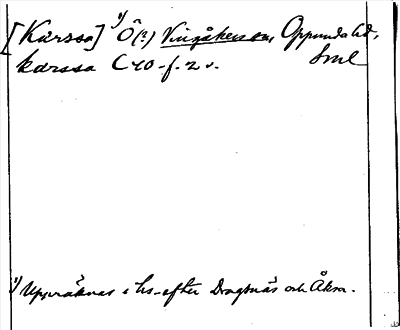 [Kärssa] 1) Ö(?) Vingåkers sn, Oppunda hd,
Sml
karssa C 40 f. 2 v.
1) Uppräknas i hs. efter Dragsnäs och Åkra.